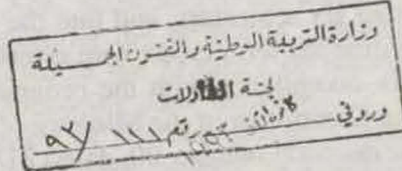 وزارة التربية الوطنية والفنون الجميلة
لجنة المقاولات
ورد في رقم ١٢١ / ٩٣